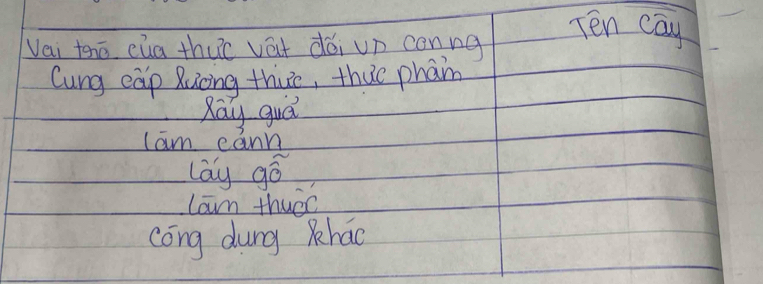 Vai trò của thực vật đối với con ng
Tên cây
Cung cấp lương thực, thực phẩm
Lấy quả
Làm cảnh
Lấy gỗ
Làm thuốc
Công dụng khác